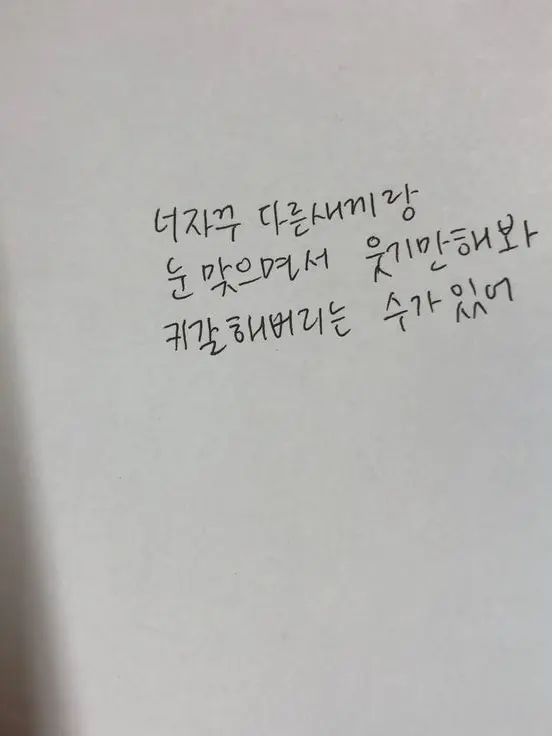 너자꾸 다른새끼랑
눈 맞으면서 웃기만해봐
키갈해버리는 수가 있어